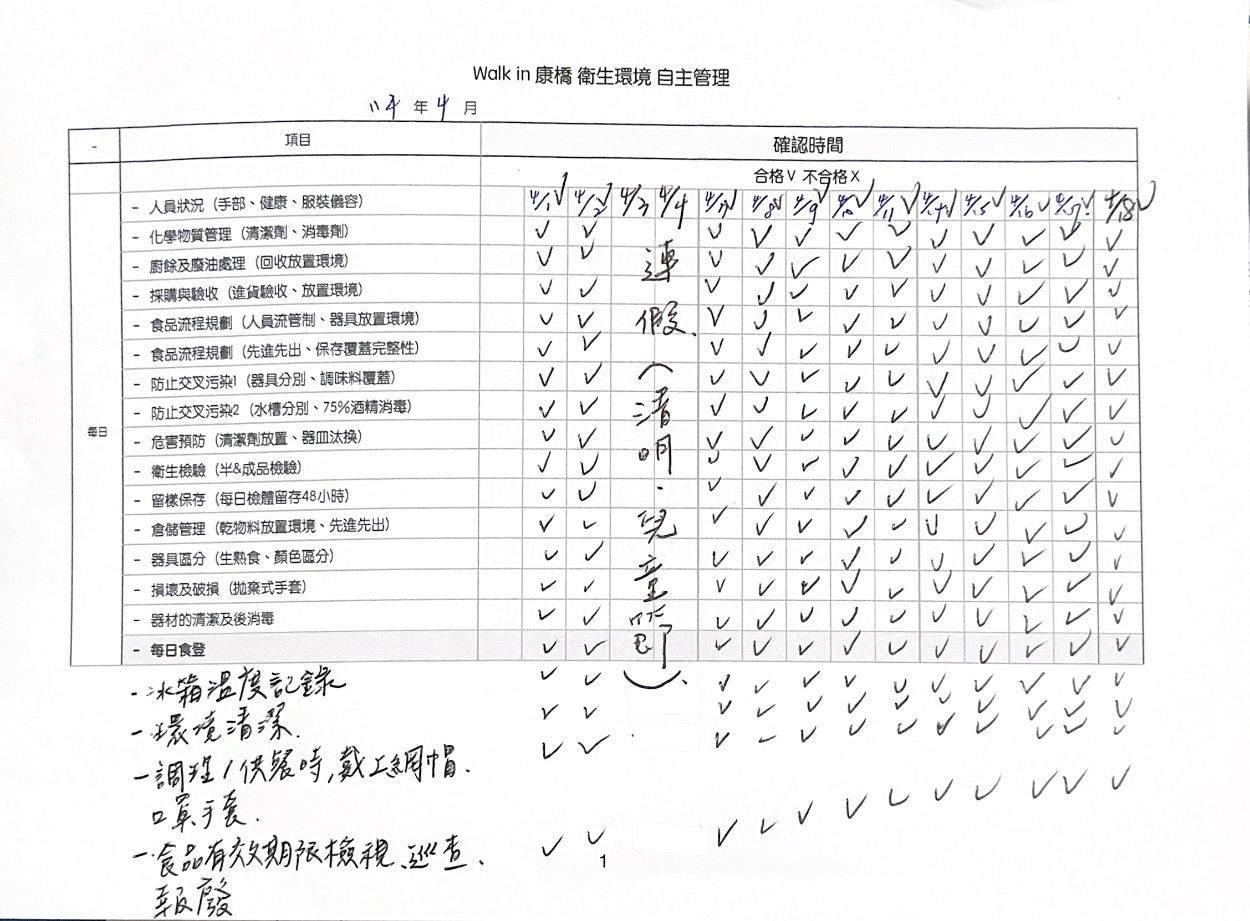 Walk in 康橋 衛生環境 自主管理
114 年 4 月
- 項目 確認時間
合格V 不合格X
- 人員狀況（手部、健康、服裝儀容） 4/1 V 4/2 V 4/3 4/4 4/7 V 4/8 V 4/9 V 4/10 V 4/11 V 4/14 V 4/15 V 4/16 V 4/17 V 4/18 V
- 化學物質管理（清潔劑、消毒劑）
- 廚餘及廢油處理（回收放置環境）
- 採購與驗收（進貨驗收、放置環境）
- 食品流程規劃（人員流管制、器具放置環境）
- 食品流程規劃（先進先出、保存覆蓋完整性）
- 防止交叉污染1（器具分別、調味料覆蓋）
- 防止交叉污染2（水槽分別、75%酒精消毒）
每日
- 危害預防（清潔劑放置、器皿汰換）
- 衛生檢驗（半&成品檢驗）
- 留樣保存（每日檢體留存48小時）
- 倉儲管理（乾物料放置環境、先進先出）
- 器具區分（生熟食、顏色區分）
- 損壞及破損（拋棄式手套）
- 器材的清潔及後消毒
- 每日食登
連假（清明·兒童節）
- 冰箱溫度記錄
- 環境清潔.
- 調理/供餐時,戴上網帽.
口罩手套.
- 食品有效期限檢視、巡查、
報廢
1